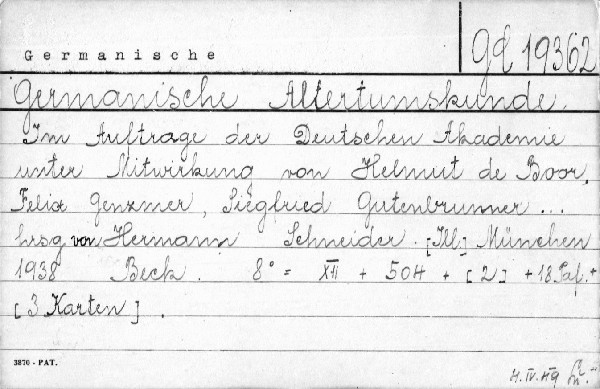 Germanische
Gd 19362
Germanische Altertumskunde.
Im Auftrage der Deutschen Akademie
unter Mitwirkung von Helmut de Boor,
Felix Genzmer, Siegfried Gutenbrunner ...
hrsg von Hermann Schneider. [Ill] München
1938 Beck. 8° = XII + 504 + [2] + 18 Taf. +
[3 Karten].
3870 - PAT.
4. IV. 49